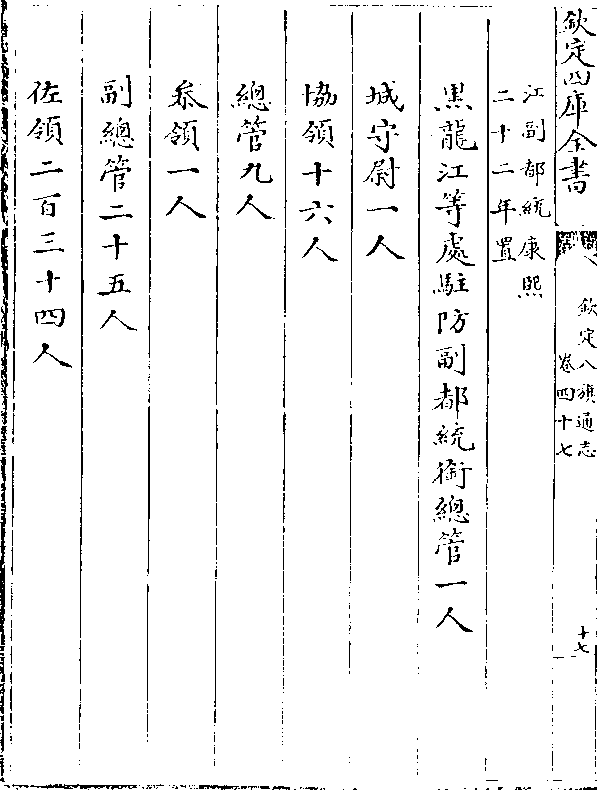 欽定四庫全書
欽定八旗通志
卷四十七
十七
江副都統康熙
二十二年置
黑龍江等處駐防副都統銜總管一人
城守尉一人
協領十六人
總管九人
叅領一人
副總管二十五人
佐領二百三十四人